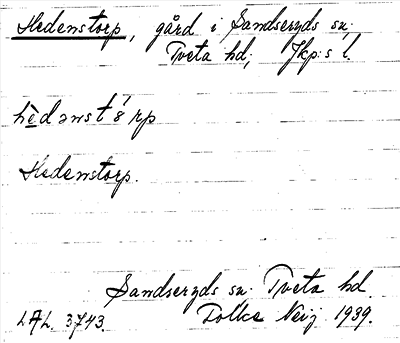 Hedenstorp, gård i Sandseryds sn.
Tveta hd, Jkp:s l.
hèdənst8́rp
Hedenstorp.
Sandseryds sn. Tveta hd.
LAL. 3743. Folke Neij 1939.